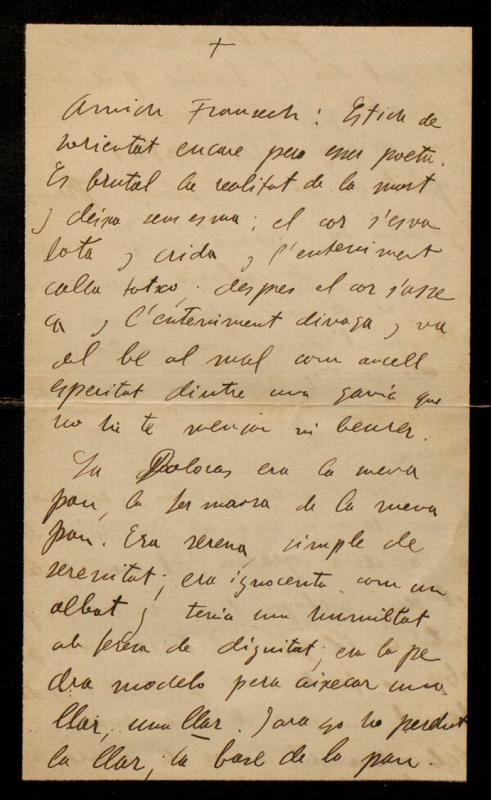 +
Amich Francesch: Estich de
sorientat encare pero
Es brutal la realitat de la mort
y deixa sens esma; el cor s'esva
lota y crida y l'enteniment
calla totxo; despres el cor s'asse
ca y l'enteniment divaga y va
del be al mal com aucell
esperitat dintre una gavia que
no hi te menjar ni beurer.
La Dolores era la meva
pau, la fermansa de la meva
pau. Era serena, simple de
serenitat; era ignocenta com un
albat y tenia una humilitat
de dignitat; era la pe
dra modelo pera aixecar una
llar, una llar. Jara jo he perdut
la llar, la base de la pau.